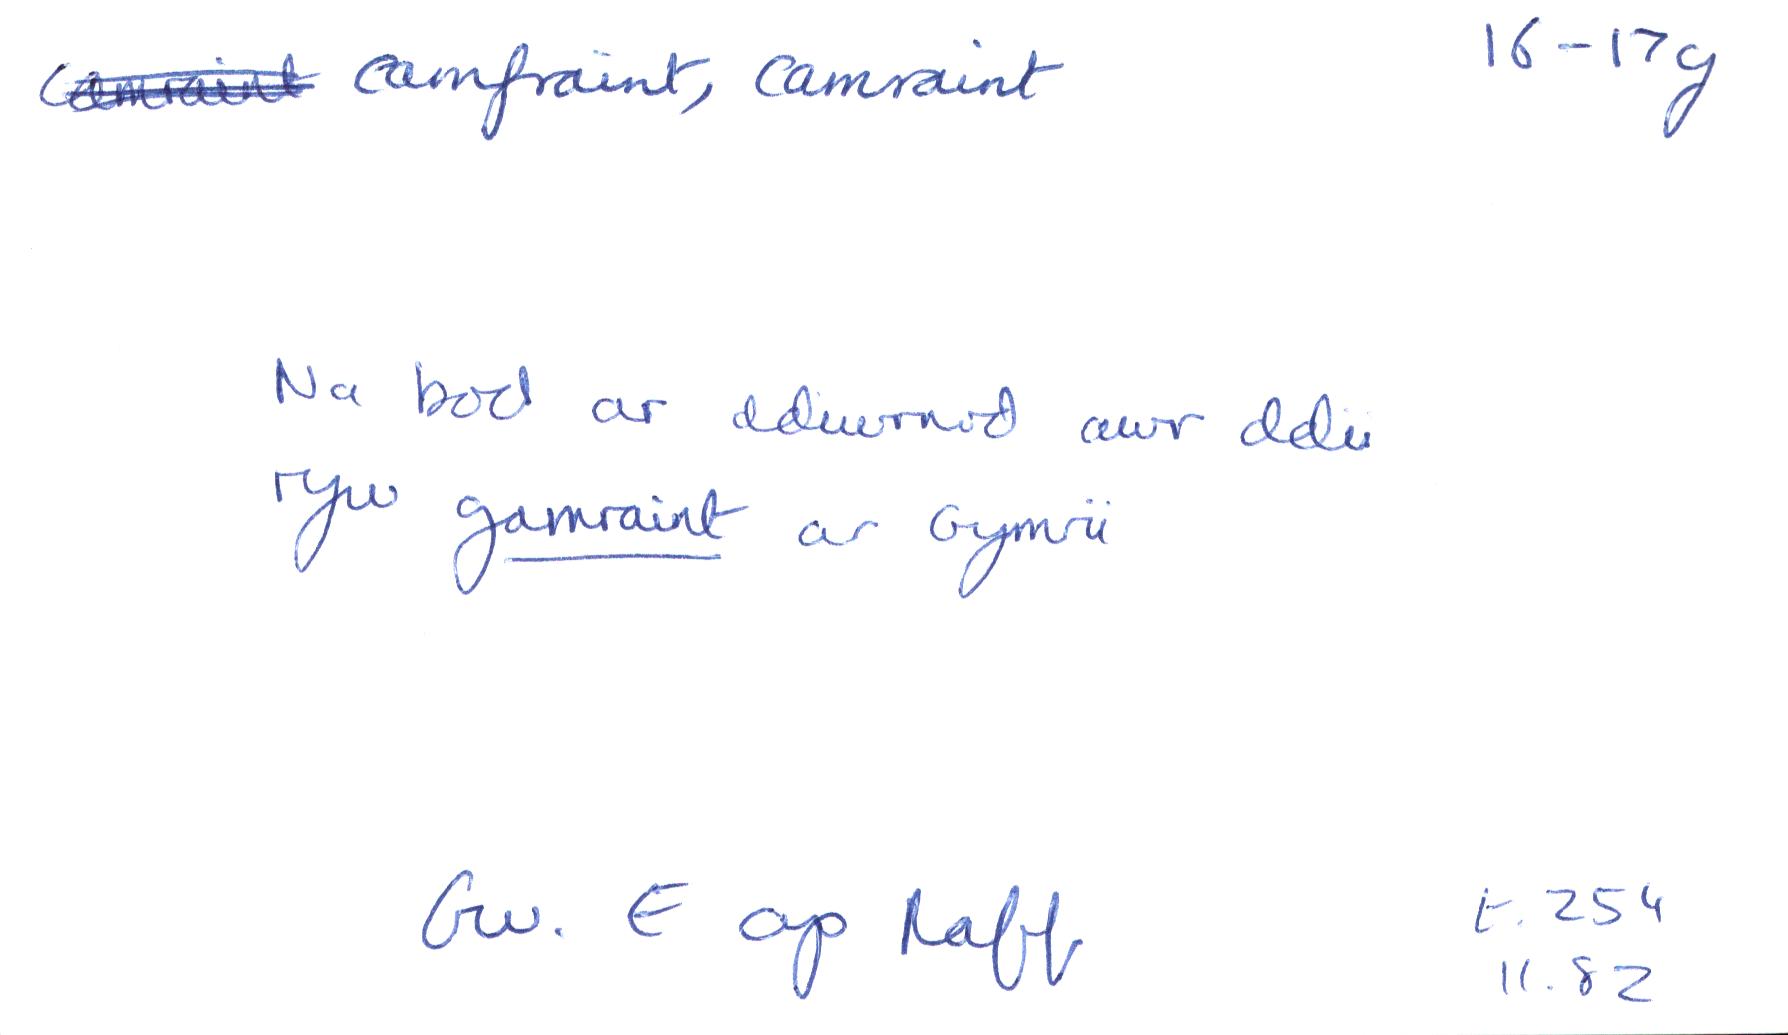 camraint camfraint, camraint 16-17g
Na bod ar ddiwrnod awr ddü
ryw gamraint ar Gymrü
Gw. E ap Raff t. 254
11.82